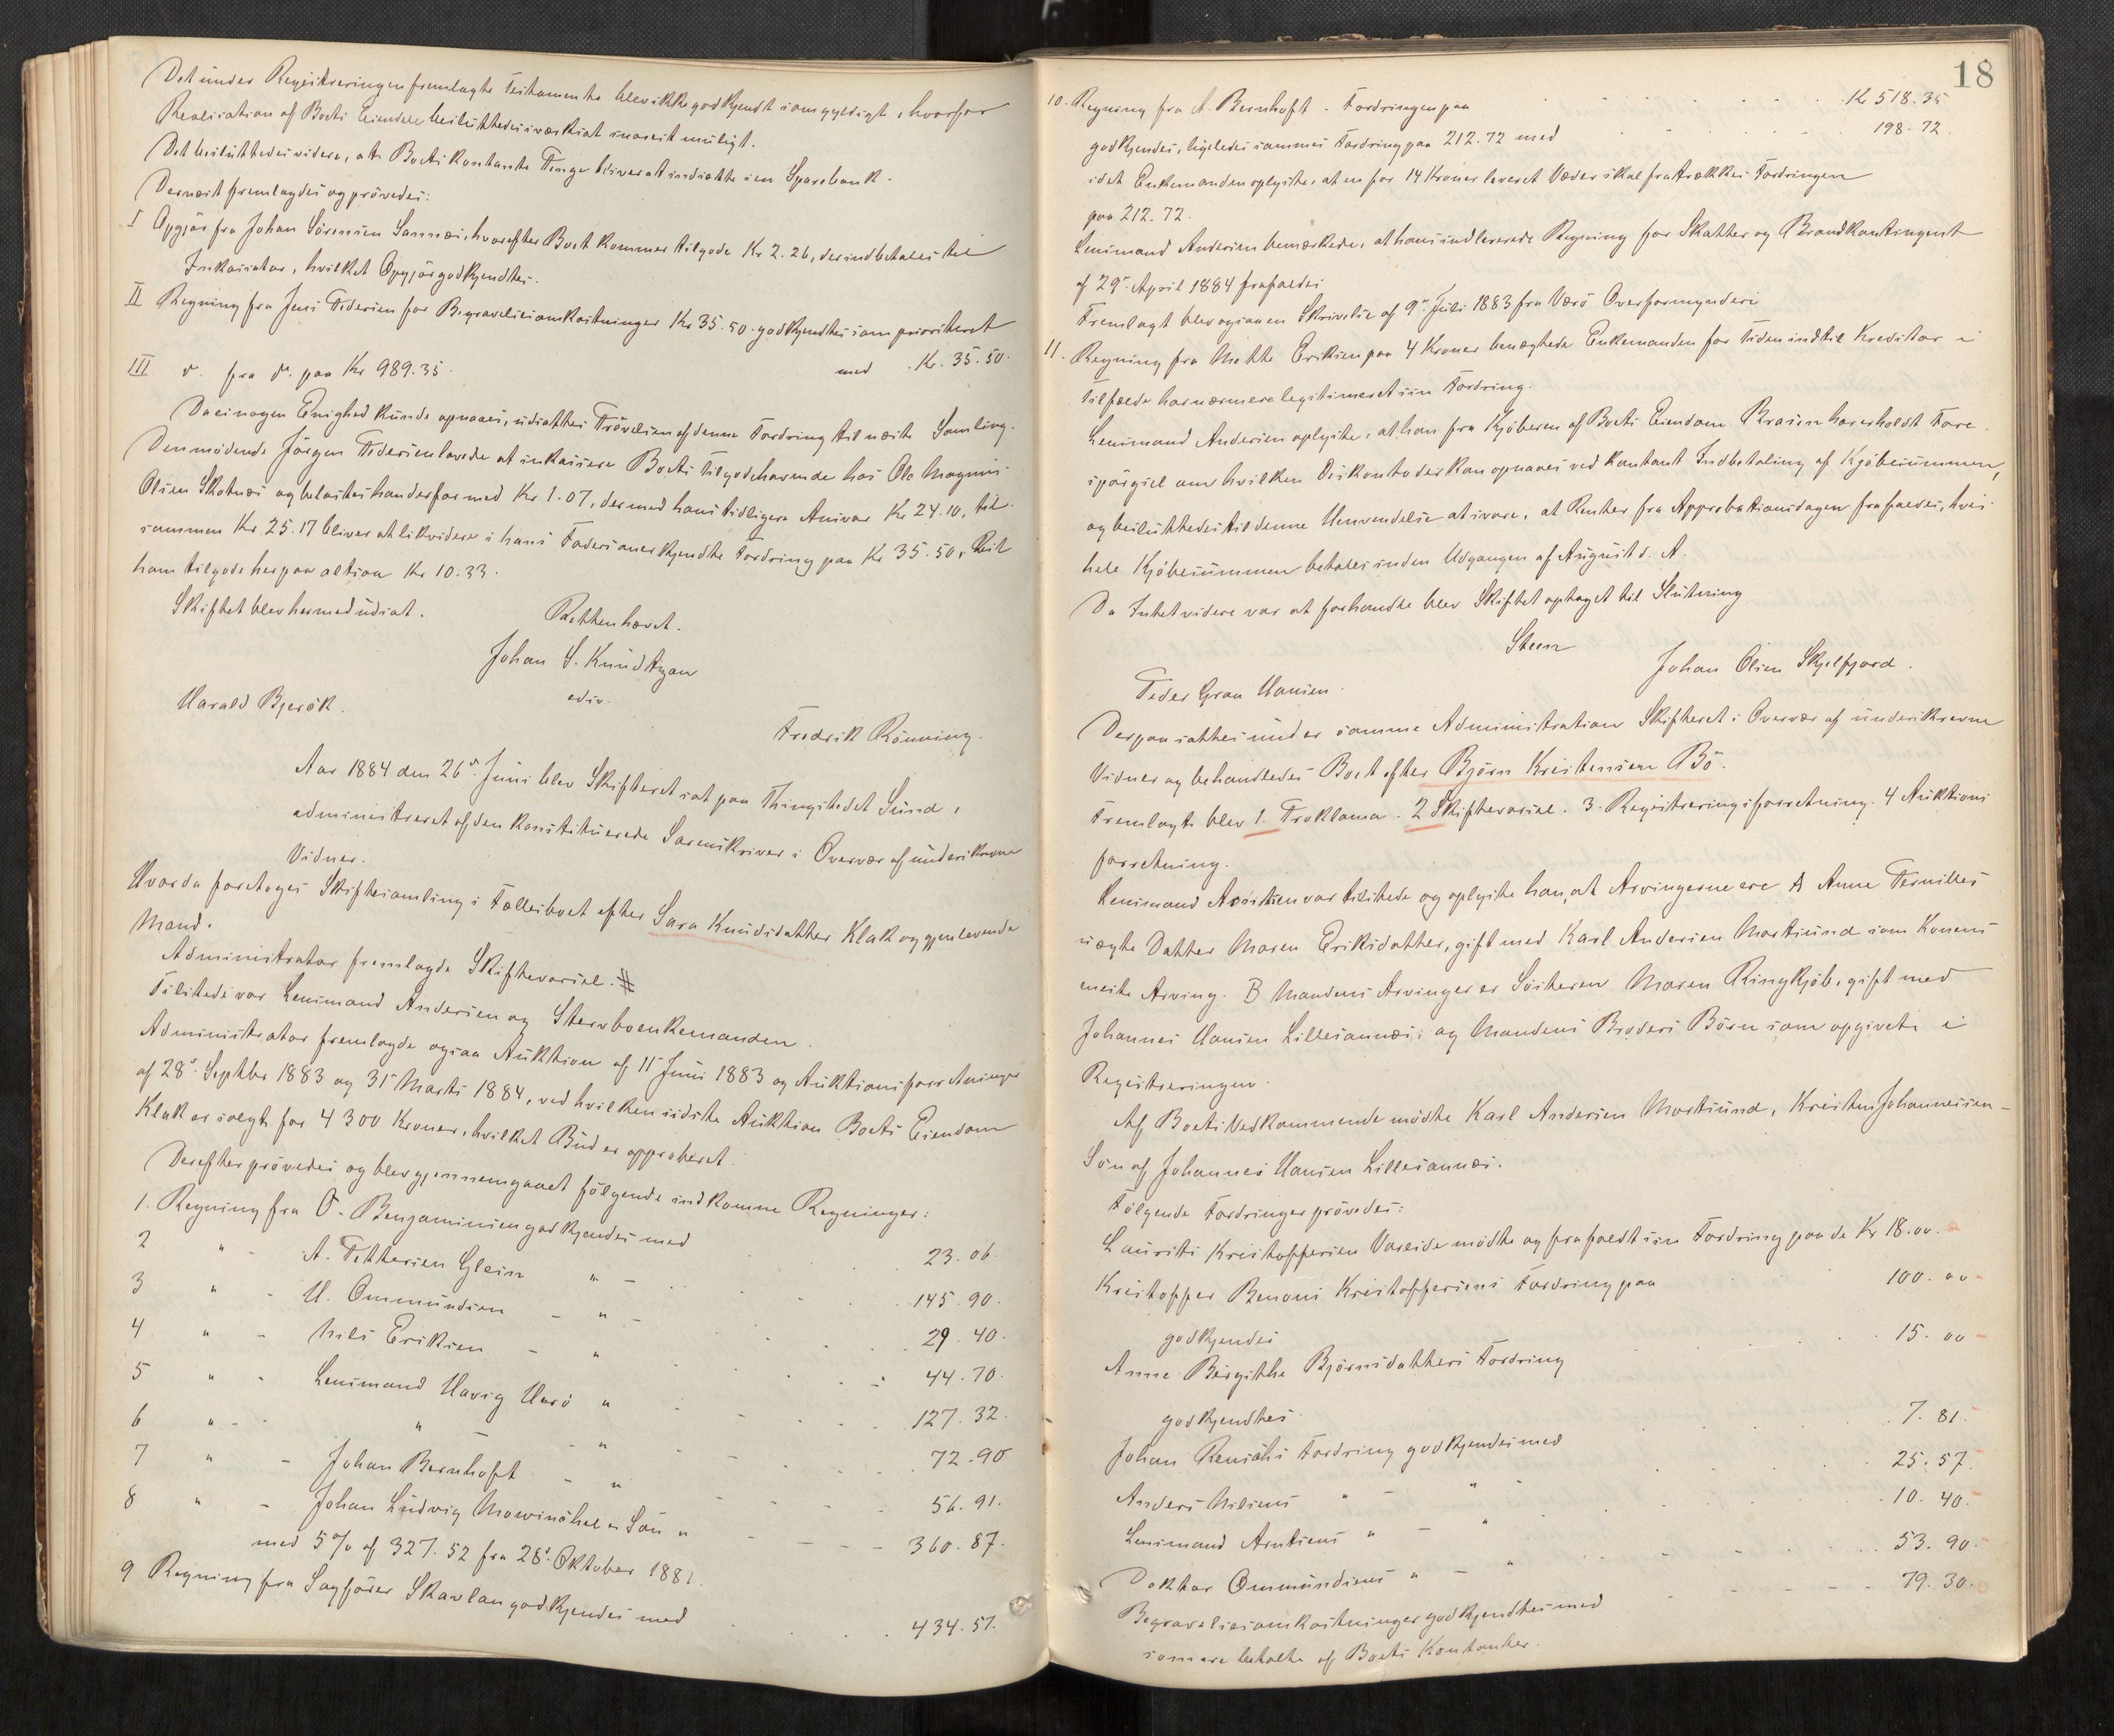 Det under Registreringen fremlagte Testamente blev ikke godkjendt som gyldigt, hvorfor
Realisation af Boets Eiendele besluttedes iværksat snarest muligt.
Det besluttedes videre, at Boets kontante Penge bliver at indsætte i en Sparebank.
Dernæst fremlagdes og prövedes:
I Opgjör fra Johan Sörensen Sannæs, hvorefter Boet kommer tilgode Kr 2.26, der indbetales til
Inkassator, hvilket Opgjör godkjendtes.
II Regning fra Jens Pedersen for Begravelsesomkostninger Kr 35.50 godkjendtes som prioriteret
med Kr. 35.50.
III do. fra do. paa Kr 989.35.
Da ei nogen Enighed kunde opnaaes, udsattes Prövelsen af denne Fordring til næste Samling.
Den mödende Jörgen Pedersen lovede at inkassere Boets Tilgodehavende hos Ole Magnus
Olsen Skotnæs og belastes han derfor med Kr 1.07, der med hans tidligere Ansvar Kr 24.10, til-
sammen Kr 25.17 bliver at likvidere i hans Faders anerkjendte Fordring paa Kr 35.50, Rest
ham tilgode herpaa altsaa Kr 10.33.
Skiftet blev hermed udsat.
Retten hævet.
Johan S. Knudtzon
edsv.
Harald Bjerök.
Fredrik Rönning.
Aar 1884 den 26de Juni blev Skifteret sat paa Thingstedet Sund,
administreret af den konstituerede Sorenskriver i Overvær af underskrevne
Vidner.
Hvor da foretoges Skiftesamling i Fællesboet efter Sara Knudsdatter Klak og gjenlevende
Mand.
Administrator fremlagde Skiftevarsel. #
Tilstede var Lensmand Andersen og Stervboenkemanden.
Administrator fremlagde ogsaa Auktion af 11 Juni 1883 og Auktionsforretninger
af 28de Septbr 1883 og 31 Marts 1884, ved hvilken sidste Auktion Boets Eiendom
Klak er solgt for 4300 Kroner, hvilket Bud er approberet.
Derefter prövedes og blev gjennemgaaet fölgende indkomne Regninger:
1. Regning fra O. Benjaminsen godkjendes med 23.06.
2 " - A. Pettersen Glein " - 145.90.
3 " - H. Ommundsen - " - 29.40.
4 " - Nils Eriksen - " 44.70.
5 " - Lensmand Havig Herö " 127.32.
6 " - " - " 72.90
7 " - Johan Bernhoft - " 56.91.
8 " - Johan Ludvig Mowinckel & Sön " 360.87.
med 5 % af 327.52 fra 28de Oktober 1881.
9 Regning fra Sagförer Skavlan godkjendes med 434.57.
18
10. Regning fra A. Bernhoft - Fordringen paa Kr 518.35
godkjendes, ligeledes sammes Fordring paa 212.72 med 198.72.
idet Enkemanden oplyste, at en for 14 Kroner leveret Væder skal fratrækkes Fordringen
paa 212.72.
Lensmand Andersen bemærkede, at hans indleverede Regning for Skatter og Brandkontingent
af 29de April 1884 frafaldes
Fremlagt blev ogsaa en Skrivelse af 9de Juli 1883 fra Værö Overformynderi
11. Regning fra Mette Eriksen paa 4 Kroner benægtede Enkemanden for Tiden indtil Kreditor i
Tilfælde har nærmere legitimeret sin Fordring.
Lensmand Andersen oplyste, at han fra Kjöberen af Boets Eiendom Krasen har erholdt Fore-
spörgsel om hvilken Diskonto der kan opnaaes ved kontant Indbetaling af Kjöbesummen,
og besluttedes til denne Henvendelse at svare, at Renter fra Approbationsdagen frafaldes, hvis
hele Kjöbesummen betales inden Udgangen af August d. A.
Da Intet videre var at forhandle blev Skiftet optaget til Slutning
Steen
Johan Olsen Skjelfjord.
Peder Graa Hansen.
Derpaa sattes under samme Administration Skifteret i Overvær af underskrevne
Vidner og behandledes Boet efter Björn Kristensen Bö.
Fremlagt blev 1. Proklama. 2 Skiftevarsel. 3. Registreringsforretning. 4 Auktions
forretning.
Lensmand Arntsen var tilstede og oplyste han, at Arvingerne ere A Anne Pernilles
uægte Datter Maren Eriksdatter, gift med Karl Andersen Mortsund som Konens
eneste Arving. B Mandens Arvinger er Sösteren Maren Ringkjöb, gift med
Johannes Hansen Lillesannæs, og Mandens Broders Börn som opgivet i
Registreringen.
Af Boets Vedkommende mödte Karl Andersen Mortsund, Kristen Johannessen -
Sön af Johannes Hansen Lillesannæs.
Fölgende Fordringer prövedes:
Laurits Kristoffersen Voreide mödte og frafaldt sin Fordring paa de Kr 18.00.
Kristoffer Benoni Kristoffersens Fordring paa 100.00
godkjendes
Anne Birgithe Björnsdatters Fordring 15.00
godkjendtes
Johan Rensåhs Fordring godkjendes med 7.81.
Anders Nilsens " - " 25.57.
Lensmand Arntsens " - " 10.40.
Doktor Ommundsens " - " 53.90.
Begravelsesomkostninger godkjendtes med 79.30.
som ere betalte af Boets Kontanter.